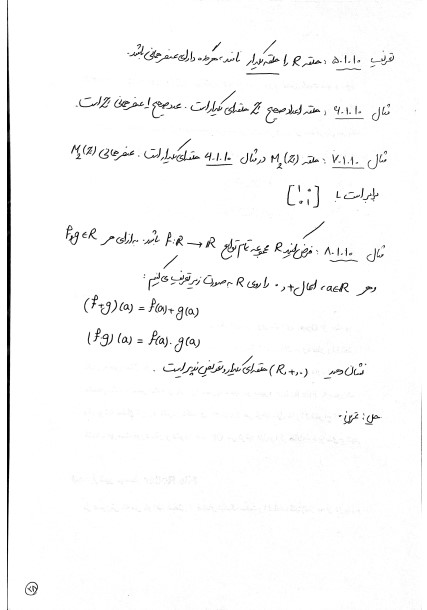 تعریف ۵.۱.۱۰ : حلقه R را حلقه یکدار نامند، هرگاه دارای عنصر همانی باشد.
مثال ۶.۱.۱۰ : حلقه اعداد صحیح ℤ حلقه‌ای یکدار است. عدد صحیح ۱ عنصر همانی ℤ است.
مثال ۷.۱.۱۰ : حلقه M₂(ℤ) در مثال ۴.۱.۱۰ حلقه‌ای یکدار است. عنصر همانی M₂(ℤ)
برابر است با [۱ ۰
۰ ۱]
مثال ۸.۱.۱۰ : فرض کنید R مجموعه تمام توابع f: ℝ → ℝ باشد. به ازای هر f,g ∈ R
و هر a∈ℝ، اعمال + و . را روی R به صورت زیر تعریف می‌کنیم :
(f+g)(a) = f(a)+g(a)
(fg)(a) = f(a).g(a)
نشان دهید (R,+,.) حلقه‌ای یکدار و تعویض‌پذیر است .
حل : تمرین.